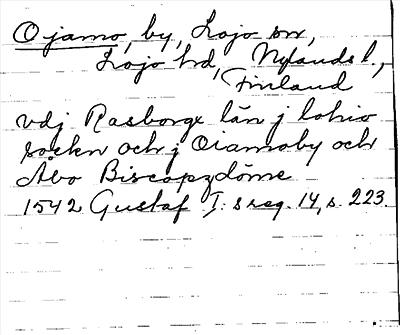 Ojamo, by, Lojo sn,
Lojo hd, Nylands l.,
Finland
vdj Rasborgx län j lohio
sockn och j Oiamoby och
Åbo Biscopzdöme
1542 Gustaf I: s reg. 14, s. 223.